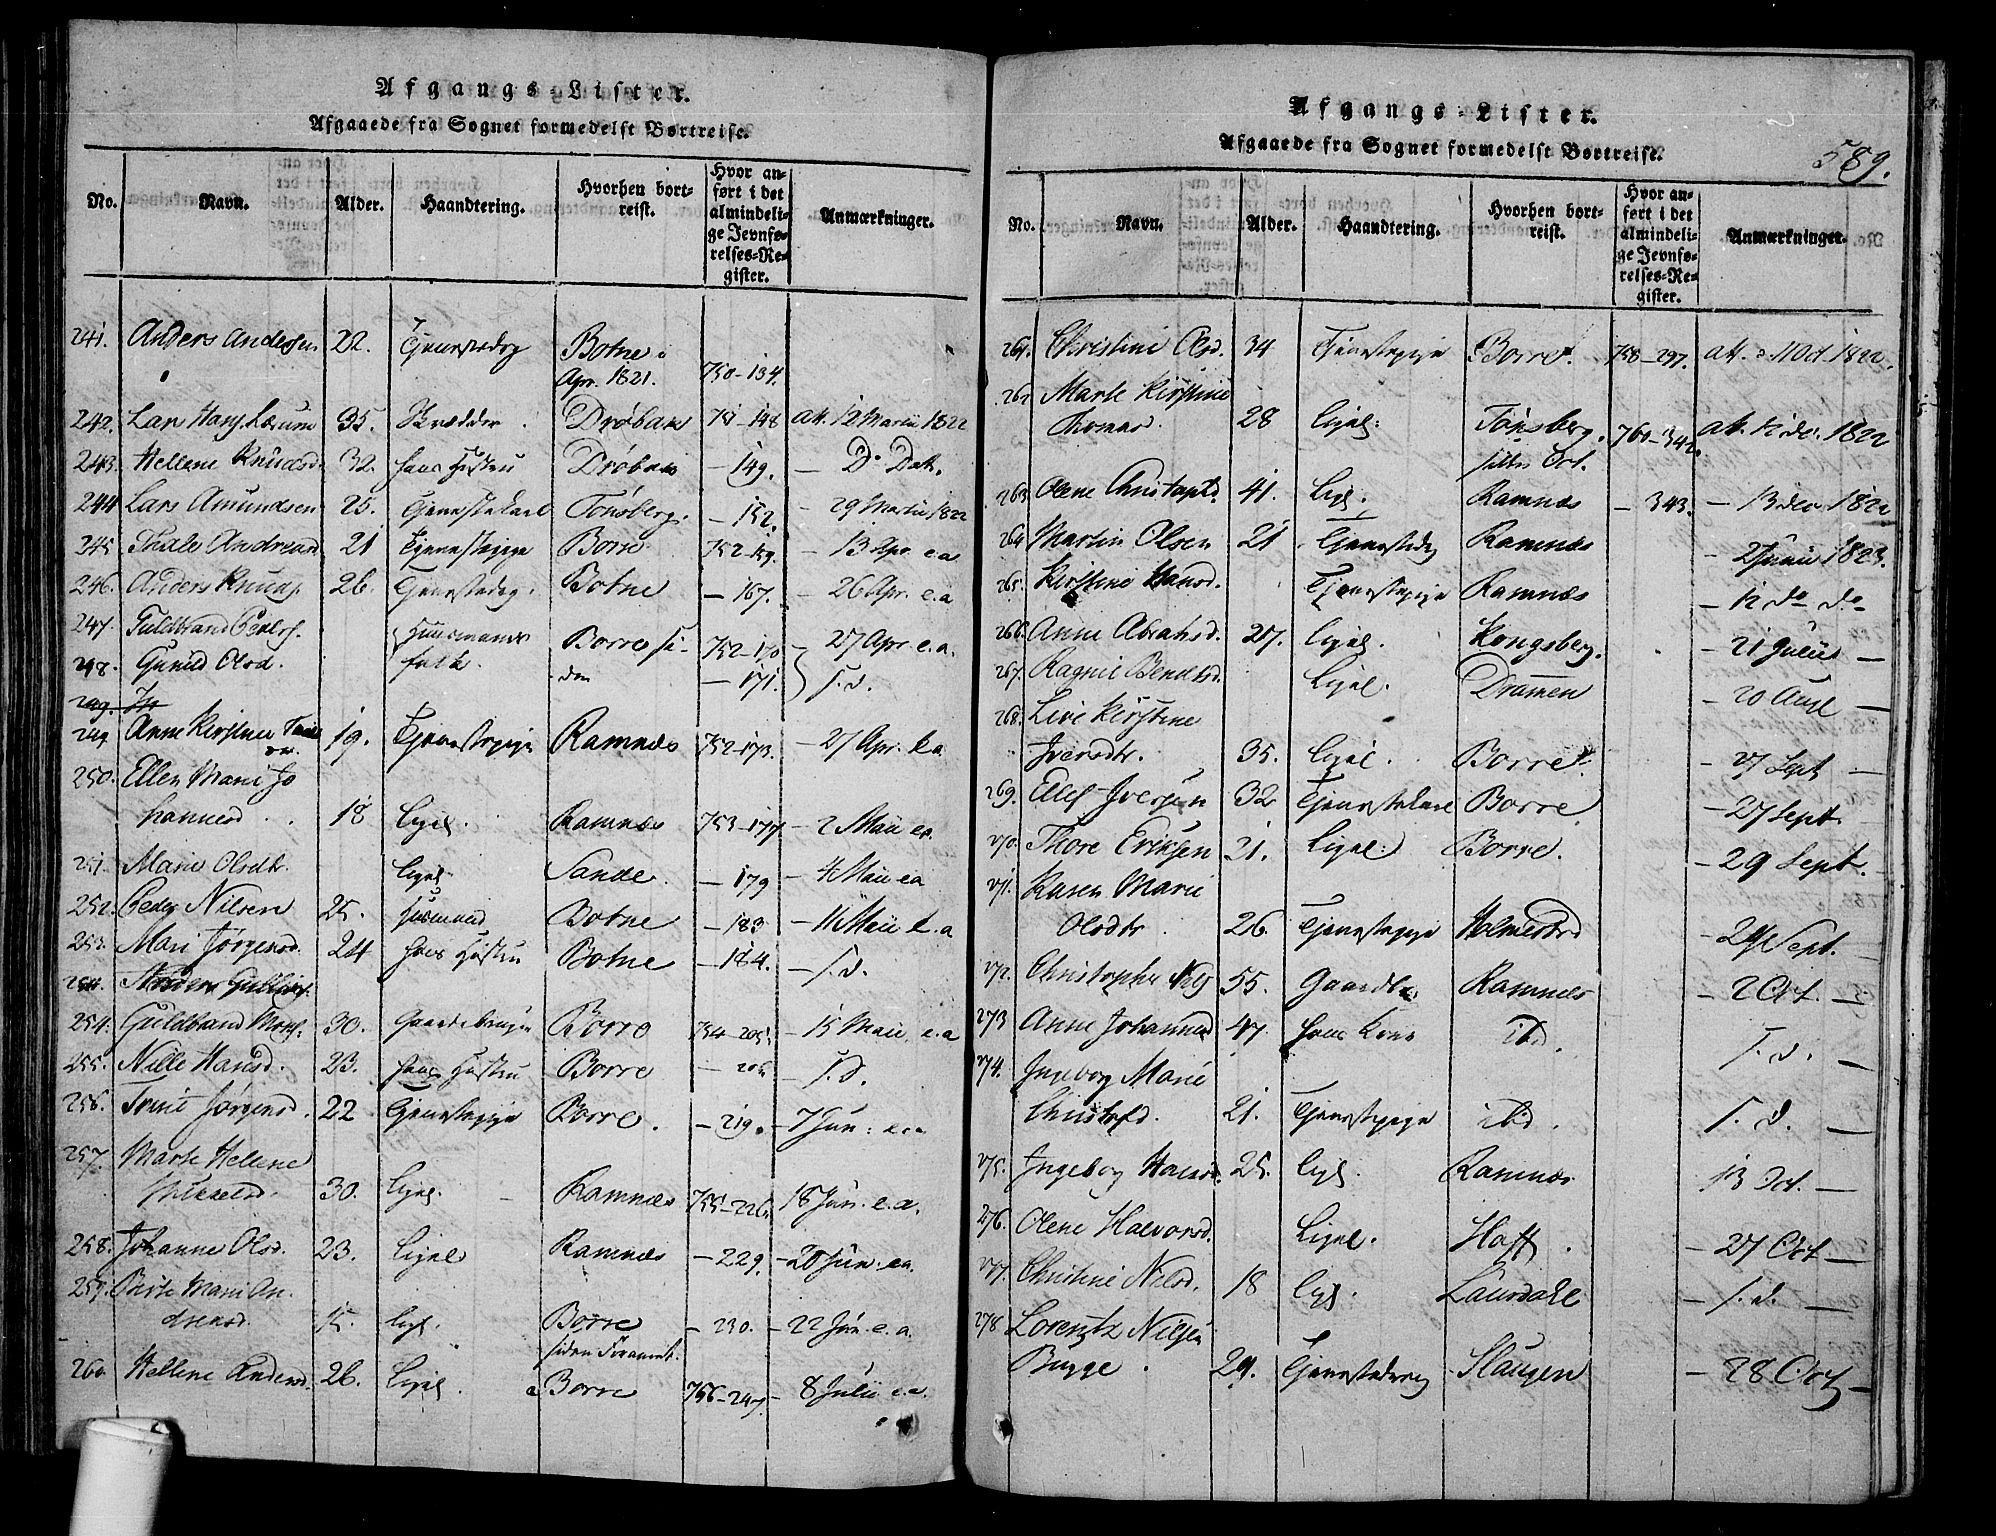 Afgangs-Lister.
Afgaaede fra Sognet formedelst Bortreise.
No. Navn. Alder. Haandtering. Hvorhen bortreist. Hvor anført i det almindelige Jevnførelses-Register. Anmærkninger.
241. Anders Andersen 22. Tjenestedrg Botne i
Apr. 1821. 750-134.
242. Lars Hansj. 35. Skrædder. Drøbak 751-148 att. 12 Martii 1822
243. Hellene Knudsd. 32. hans Hustru Drøbak - 149. - Do Dat.
244 Lars Amundsen 25. Tjenestekarl Tønsberg. - 152. - 29 Martii 1822
245 Thale Andread. 21 Tjenestepige Borre 752-159. - 13 Apr. e.a
246. Anders Knuds. 26. Tjenestedrg. Botne - 167. - 26 Apr. e.a
247. Guldbrand Pedersf. Huusmands Borre si- 752-170 - 27 Apr. e.a.
248. Gunild Olsd. folk. den - 171. s. d.
249 Anne Kirstine 19. Tjenestepige Ramnæs 752-173. - 27 Apr. e.a
250. Ellen Marie Jo
hannesd. 18 ligel. Ramnæs 753-177. - 2 Maii e.a.
251. Marie Olsdtr. ligel. Sande. - 179 - 4 Maii ea
252. Peder Nilsen 25. Husmand Botne - 183 - 11 Maii e.a
253. Mari Jørgensd. 24 hans Hustru Botne - 184. - s. d.
254. Guldbrand 30. Gaardebruger Borre 754-205. - 15 Maii e.a
255. Nille Hansd. 23. hans Hustru Borre - 206 - s. d.
256. Trine Jørgensd. 22 Tjenestepige Borre. - 219. - 7 Jun: e.a
257. Marte Hellene
Mikkelsd. 30. ligel. Ramnæs 755-226. 18 Jun. e.a.
258. Johanne Olsd. 23. ligel Ramnæs - 229. - 20 Jun: ea.
259. Marie An-
dersend. 15. ligl. Borre - 230. - 22 Jun. e.a.
siden
260 Hellene Andersd. 26. ligel. Borre 756-247. - 8 Julii e.a.
Afgangs-Lister.
Afgaaede fra Sognet formedelst Bortreise.
589.
No. Navn. Alder. Haandtering. Hvorhen bortreist. Hvor anført i det almindelige Jevnførelses-Register. Anmærkninger.
261. Christine Olsd. 34 Tjenestepige Borre. 758-297. att. 1822.
262 Marte Kirstine
Thomasd. 28 ligel: Tønsberg. 760-342. att. 12 dec. 1822
263 Olene Christophd. 41. ligl. Ramnæs - 343. - 13 dec. 1822
264 Martin Olsen 21 Tjenestedrg Ramnæs - 2 Junii 1823.
265. Kirstine Hansd. Tjenestepige Ramnæs - 12 do do
266. Anne Abrahsd. 27. ligel. Kongsberg. - 21 Julii -
267. Ragnil Bendtsd. ligel. Dramen - 20 Aug -
268. Live Kirstine
Iversdtr. 35. ligel. Borre. - 27 Sept -
269. Ellef Iversen 32 Tjenestekarl Borre - 27 Sept.
270. Thore Eriksen 21. ligel: Borre. - 29 Sept.
271. Karen Marie
Olsdtr. 26. Tjenestepige Holmestrd - 24 Sept.
272. Christopher Nils 55. Gaardbr. Ramnæs - 2 Oct. -
273 Anne Johannesd 47. hans Kone ibd. s. d. -
274. Ingeborg Marie
Christofd. 21. Tjenestepige ibd. s. d. -
275. Ingeborg 25. ligl. Ramnæs 13 Oct. -
276. Olene Halvorsd. ligel. Hoff. - 27 Oct -
277. Christine Nilsd. 18 ligl. Laurdahl - s. d. -
278 Lorentz Nilsen
Bugge. 29. Tjenestedreng Slaugen - 28 Oct -